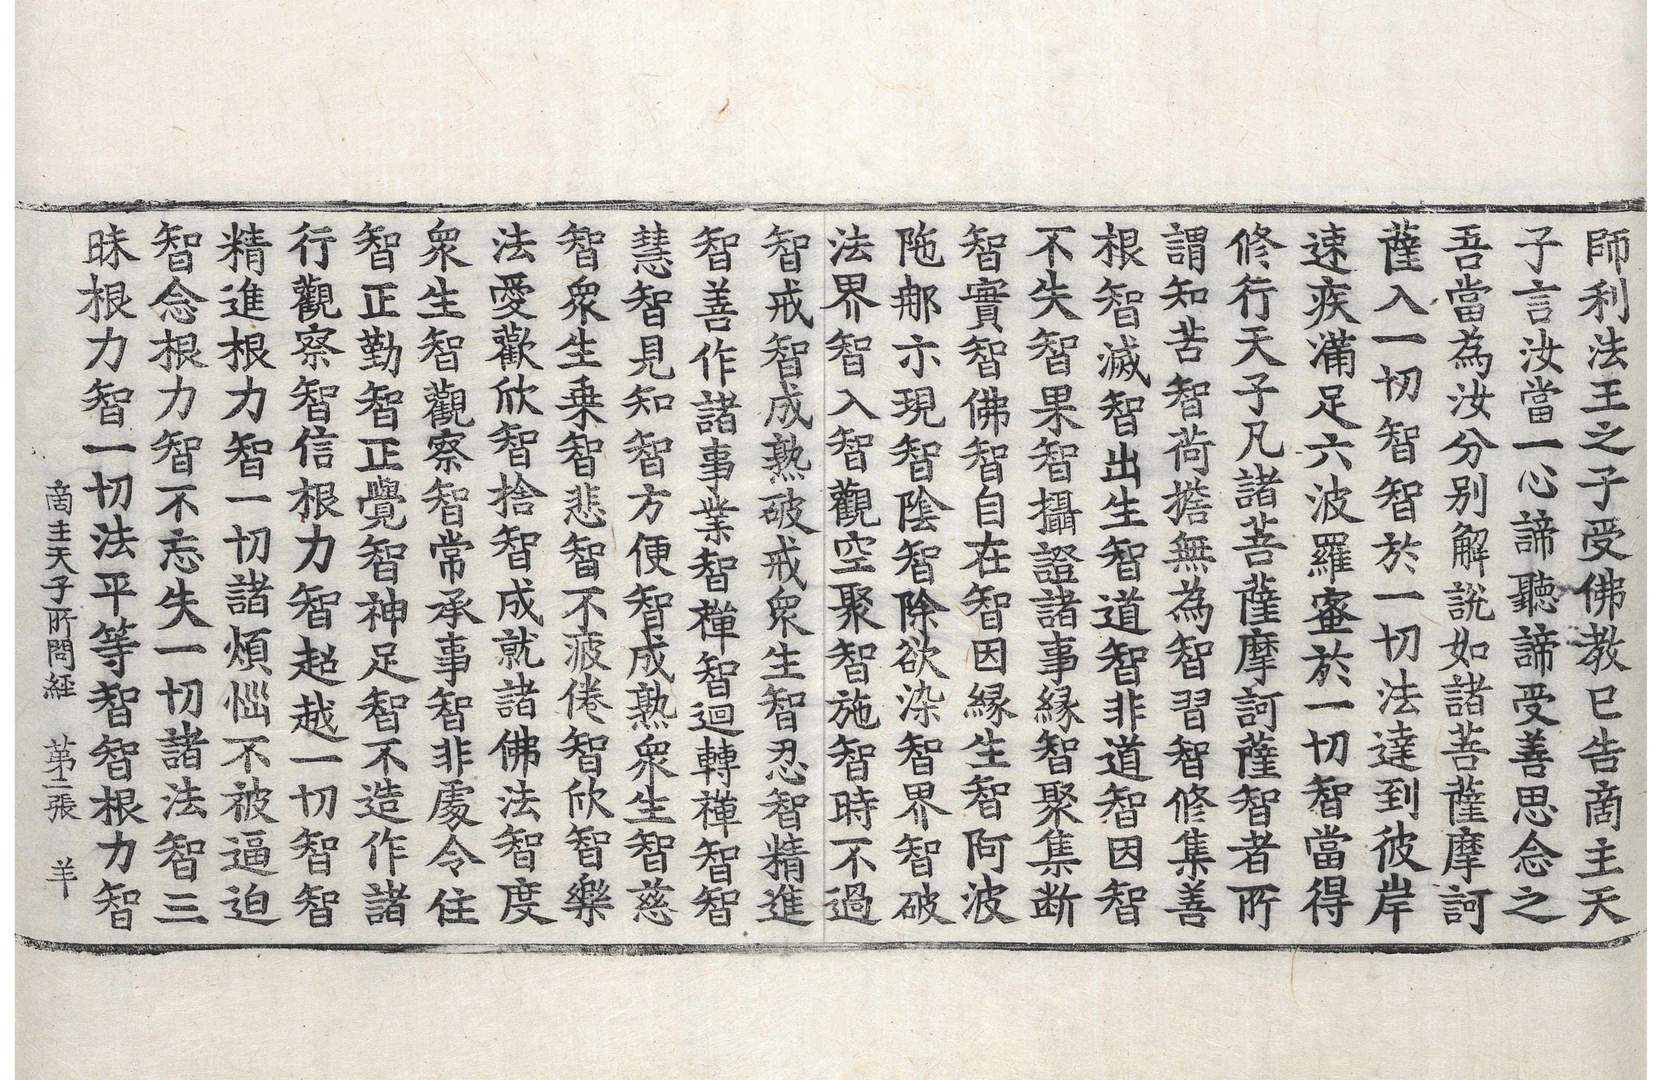 師利法王之子受佛教已告啇主天
子言汝當一心諦聽諦受善思念之
吾當為汝分別解說如諸菩薩摩訶
薩入一切智智於一切法達到彼岸
速疾滿足六波羅蜜於一切智當得
修行天子凡諸菩薩摩訶薩智者所
謂知苦智荷擔無為智習智修集善
根智滅智出生智道智非道智因智
不失智果智攝證諸事緣智聚集断
智實智佛智自在智因緣生智阿波
陁那示現智陰智除欲染智界智破
法界智入智觀空聚智施智時不過
智戒智成熟破戒眾生智忍智精進
智善作諸事業智禪智迴轉禪智智
慧智見知智方便智成熟眾生智慈
智眾生乗智悲智不疲倦智欣智樂
法愛歡欣智捨智成就諸佛法智度
眾生智觀察智常承事智非處令住
智正勤智正覺智神足智不造作諸
行觀察智信根力智超越一切智智
精進根力智一切諸煩惱不被逼迫
智念根力智不忘失一切諸法智三
昧根力智一切法平等智智根力智
啇主天子所問経　第二張　羊